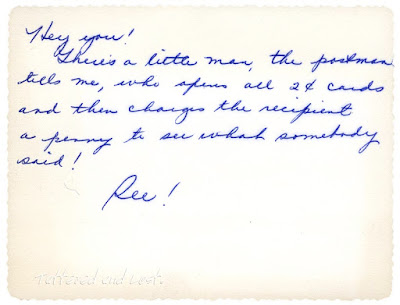 Hey you!
There's a little man, the postman
tells me, who opens all 2¢ cards
and then charges the recipient
a penny to see what somebody
said!
Ree!
Tattered and Lost